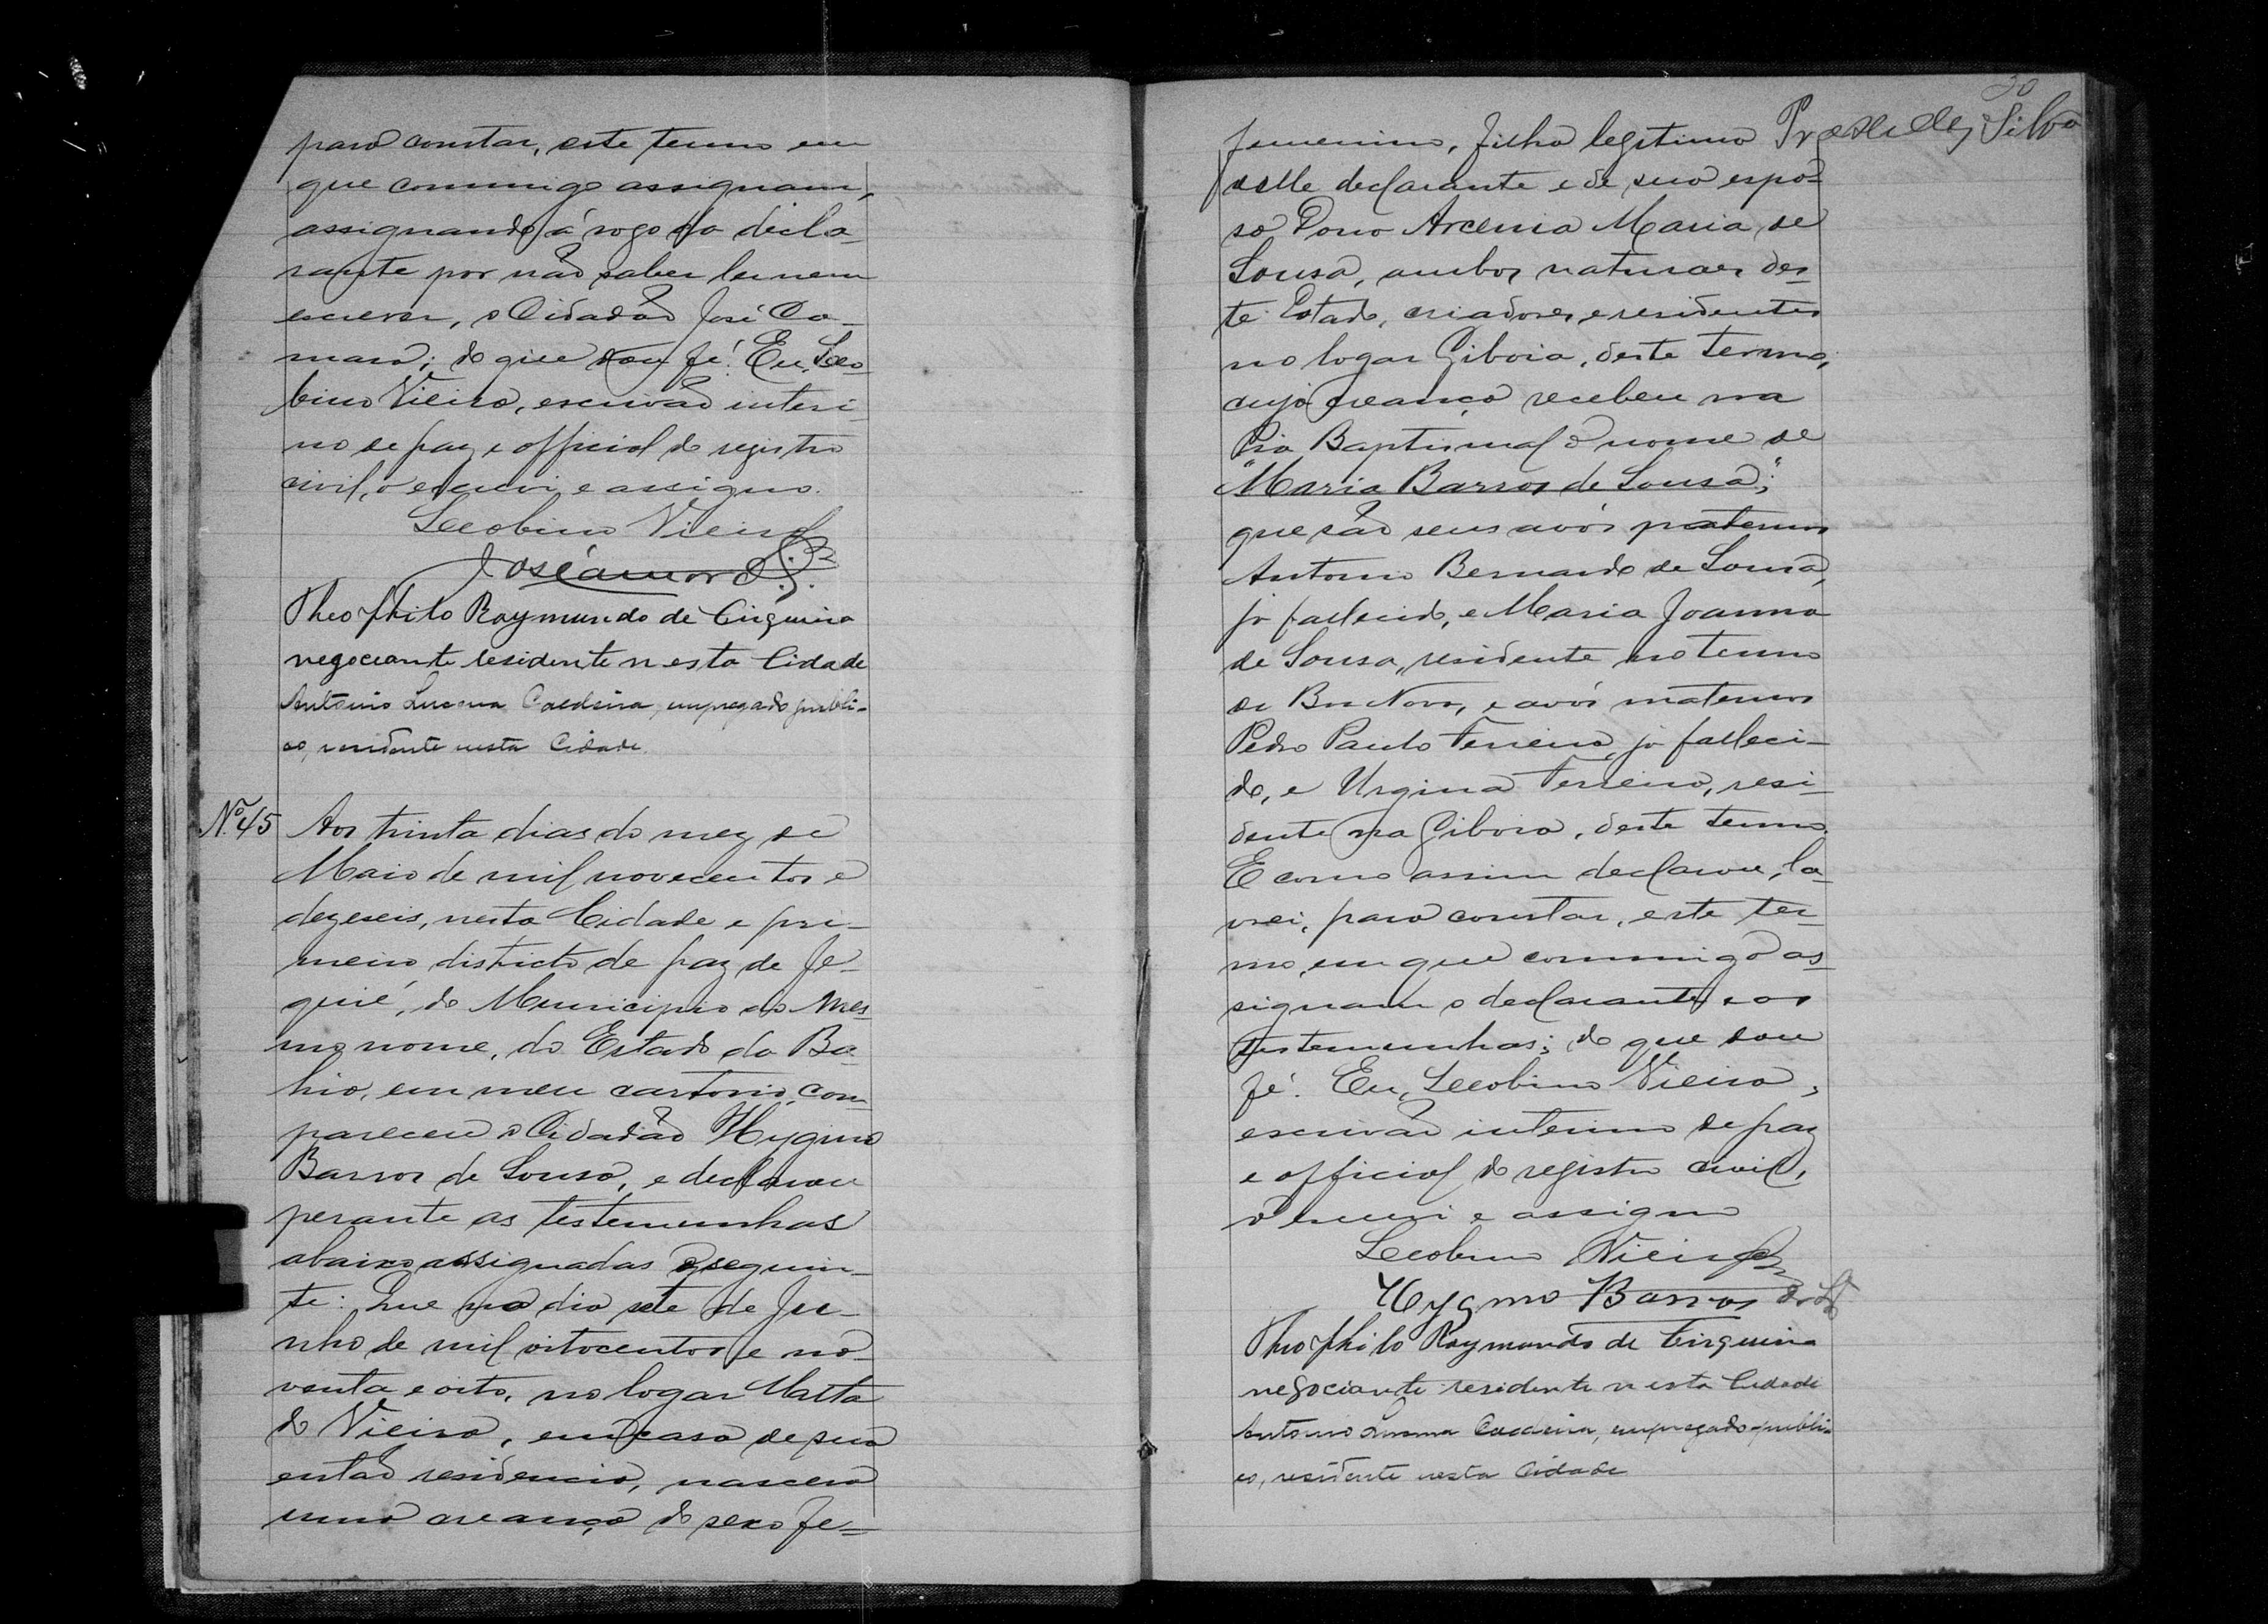 para constar, este termo em
que commigo assignam,
assignando á rogo da decla-
rante por não saber ler nem
escrever, o Cidadão José Ca-
mara; do que dou fé. Eu, Leo-
bino Vieira, escrivão interi-
no de paz e official do registro
civil, o escrevi e assigno.
Leobino Vieira
José
Theophilo Raymundo de Cirqueira
negociante residente nesta Cidade
Antonio Lucena Caldeira, empregado publi-
co, residente nesta Cidade
Nº 45 Aos trinta dias do mez de
Maio de mil novecentos e
dezeseis, nesta Cidade e pri-
meiro districto de paz de Je-
quié, do Municipio do mes-
mo nome, do Estado da Ba-
hia, em meu cartorio, com-
pareceu o Cidadão Hygino
Barros de Sousa, e declarou
perante as testemunhas
abaixo assignadas o seguin-
te: Que no dia sete de Ju-
nho de mil oitocentos e no-
venta e oito, no logar Matta
do Vieira, em casa de sua
então residencia, nascera
uma creança do sexo fe-
30
femenino, filha legitima
delle declarante e de sua espo-
sa Dona Arcenia Maria de
Sousa, ambos naturaes des-
te Estado, criadores e residentes
no logar Giboia, deste termo,
cuja creança recebeu na
Pia Baptismal o nome de
"Maria Barros de Sousa";
que são seus avós paternos
Antonio Bernardo de Sousa,
já fallecido, e Maria Joanna
de Sousa, residente no termo
de Boa Nova, e avós maternos
Pedro Paulo Ferreira, já falleci-
do, e Urgina Ferreira, resi-
dente na Giboia, deste termo.
E como assim declarou, la-
vrei, para constar, este ter-
mo, em que commigo as-
signam o declarante e as
testemunhas; do que dou
fé. Eu, Leobino Vieira,
escrivão interino de paz
e official do registro civil,
o escrevi e assigno
Leobino Vieira
Hygino Barros de Sz
Theophilo Raymundo de Cirqueira
negociante residente nesta Cidade
Antonio Lucena Caldeira, empregado publi-
co, residente nesta Cidade
Silva